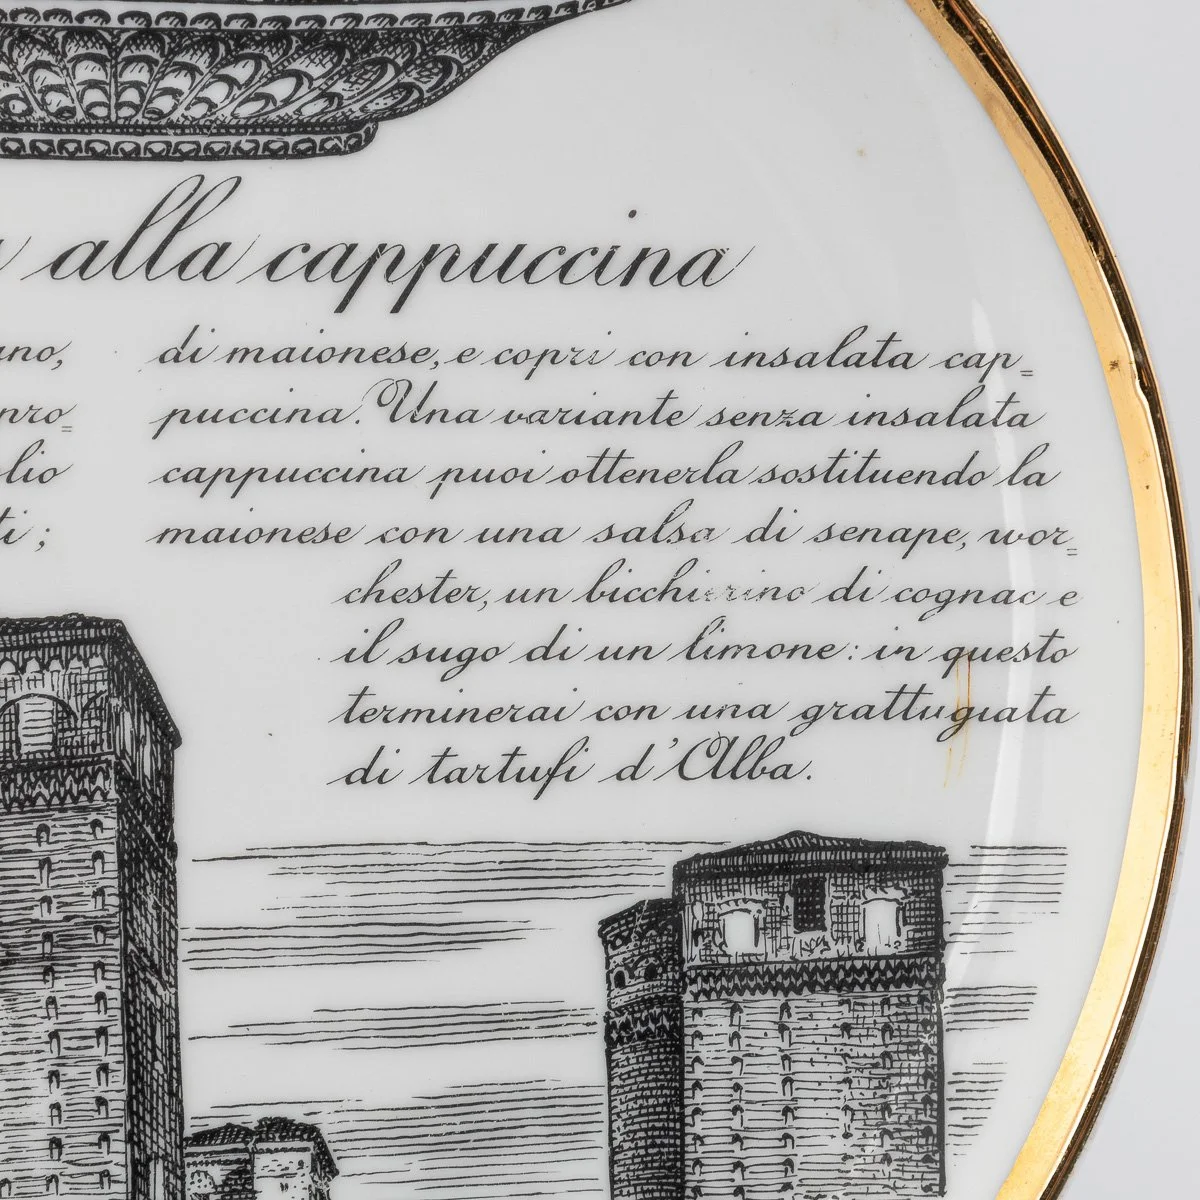 alla cappuccina
di maionese, e copri con insalata cap=
puccina. Una variante senza insalata
cappuccina puoi ottenerla sostituendo la
maionese con una salsa di senape, wor=
chester, un bicchierino di cognac e
il sugo di un limone: in questo
terminerai con una grattugiata
di tartufi d'Alba.